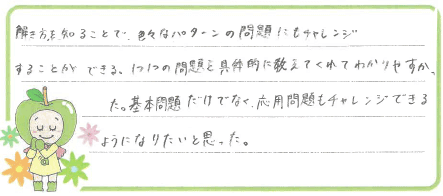 解き方を知ることで、色々なパターンの問題にもチャレンジ
することができる。1つ1つの問題を具体的に教えてくれてわかりやすかっ
た。基本問題だけでなく、応用問題もチャレンジできる
ようになりたいと思った。